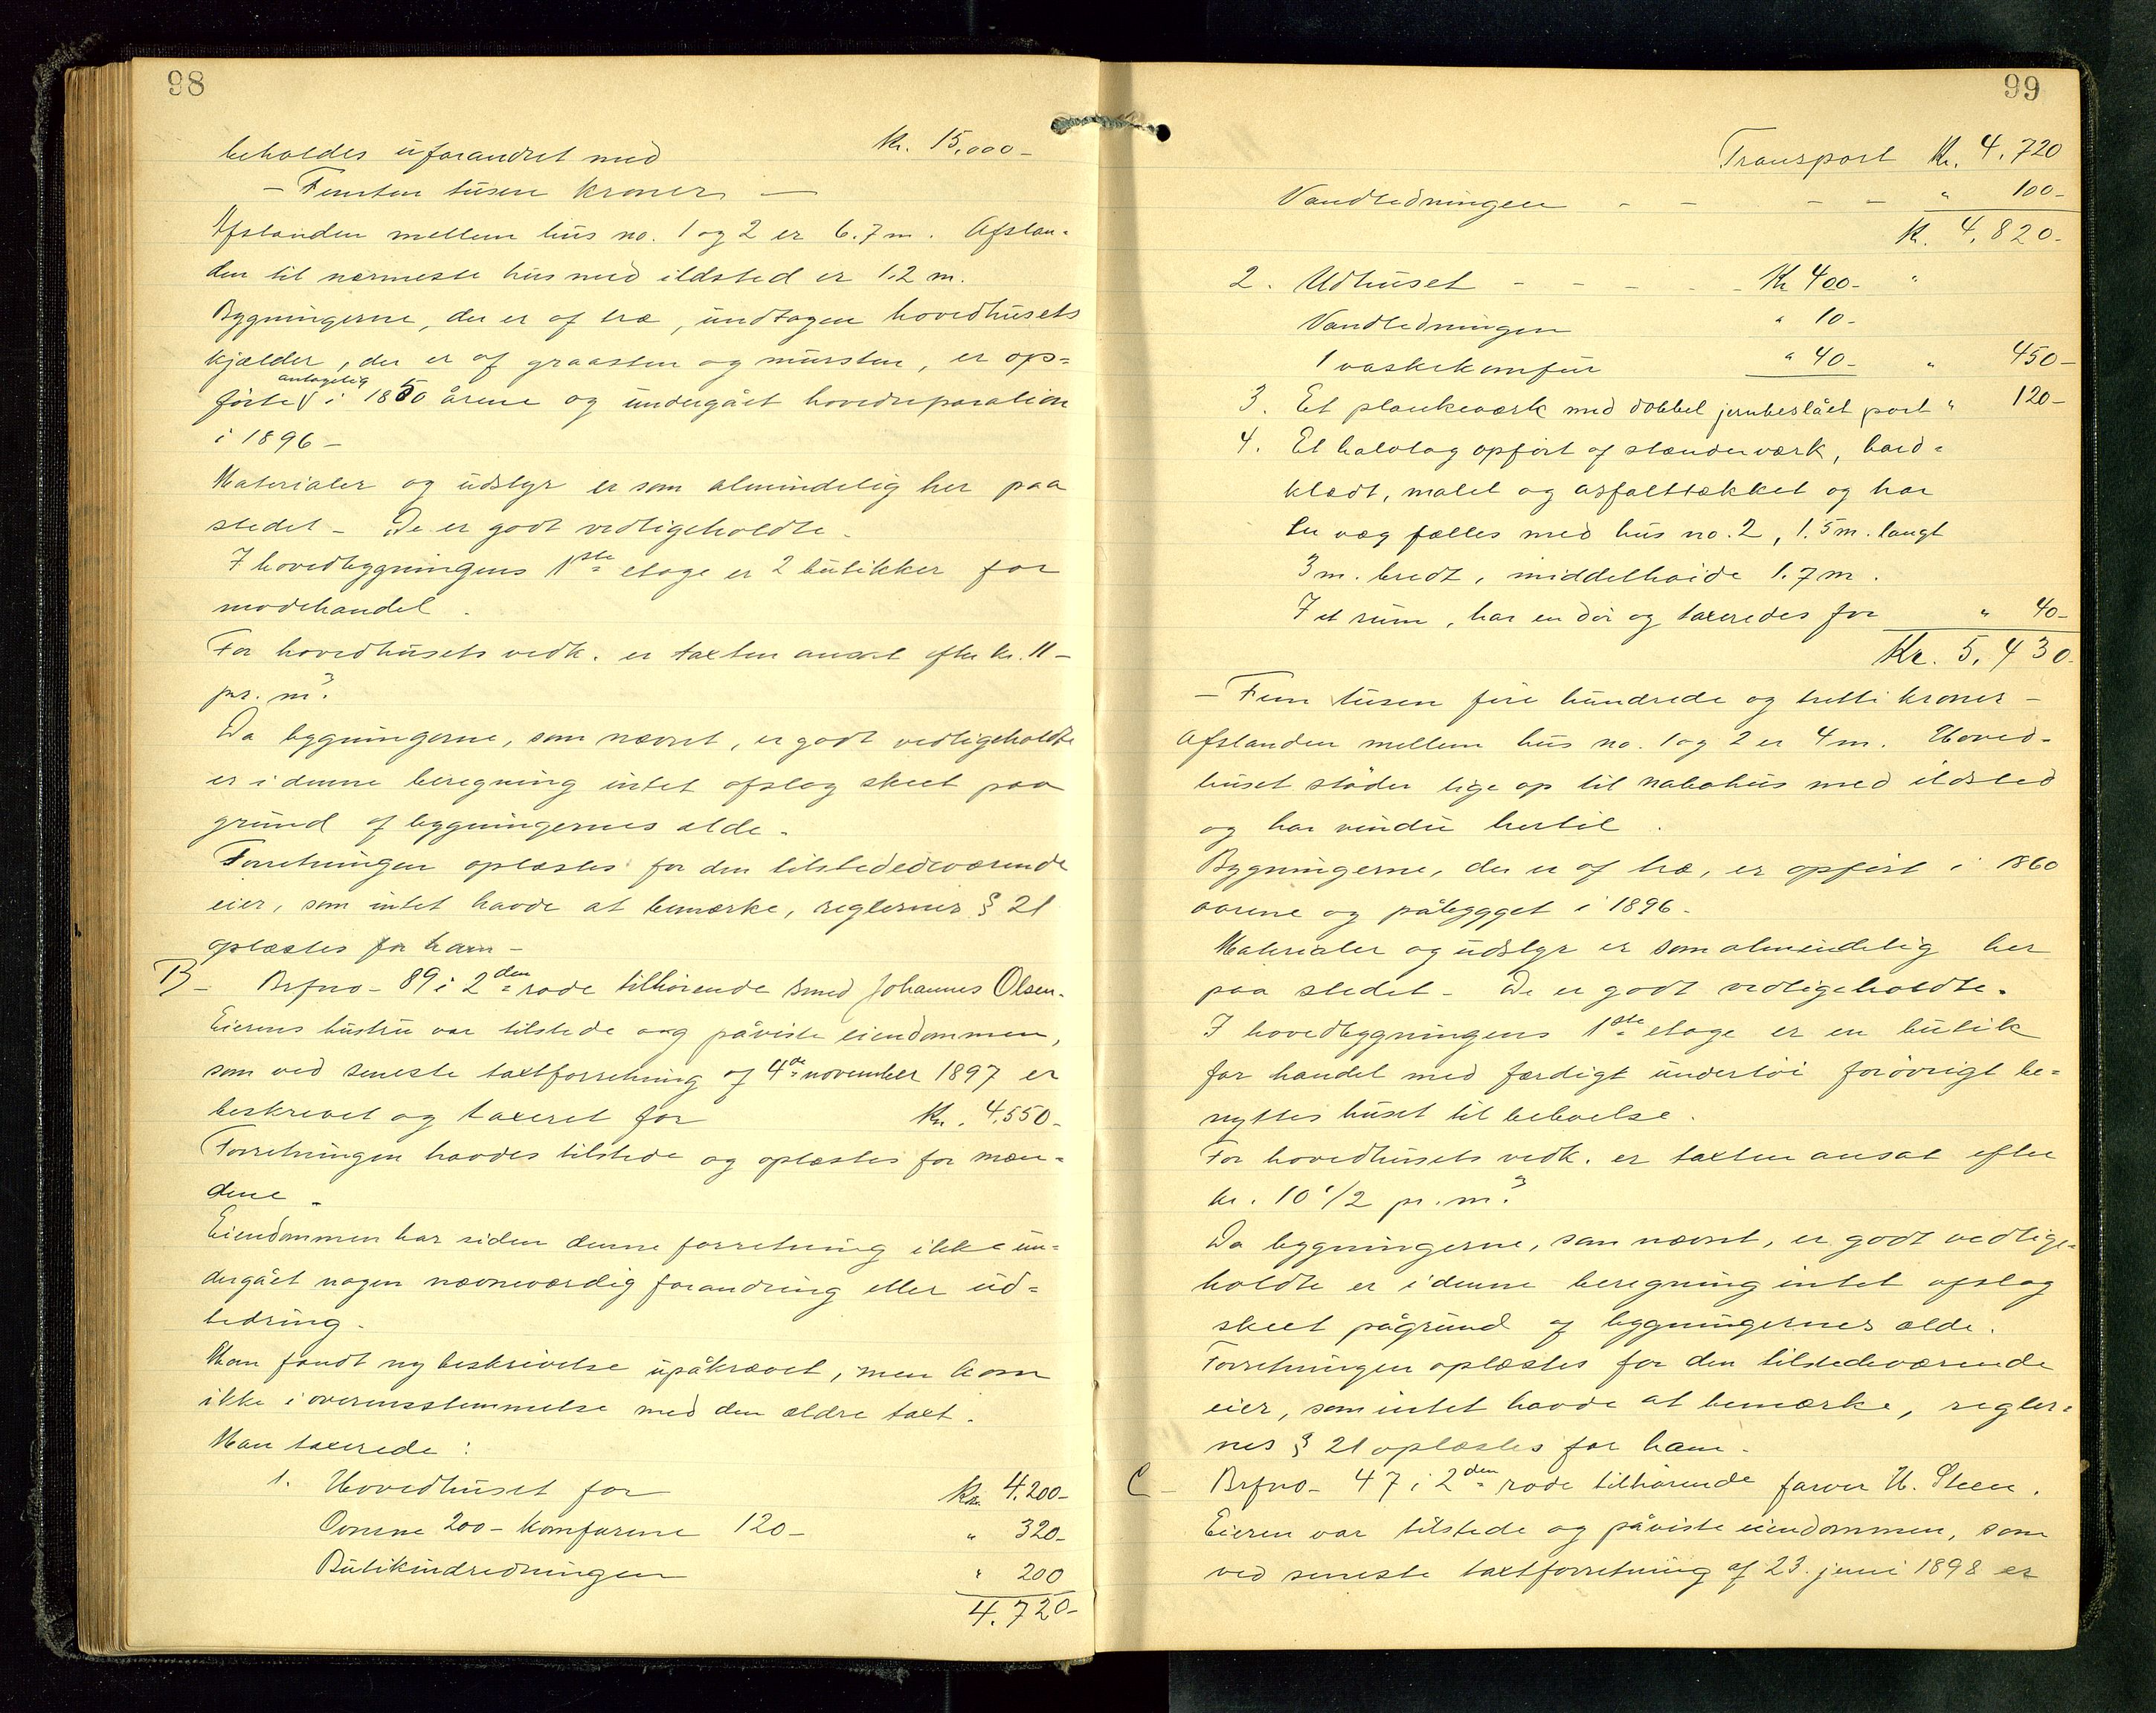 98
beholdes uforandret med Kr. 15,000-
- Femten tusen kroner, -
Afstanden mellem hus no. 1 og 2 er 6.7 m. Afstan-
den til nærmeste hus med ildsted er 1.2 m.
Bygningerne, der er af træ, undtagen hovedhusets
kjælder, der er af graasten og mursten, er op-
førte antagelig i 1850 årene og undergået hovedreparation
i 1896-
Materialer og udstyr er som almindelig her paa
stedet - De er godt vedligeholdte.
I hovedbygningens 1ste etage er 2 butikker for
modehandel.
For hovedhusets vedk. er taxten ansat efter kr. 11-
pr. m3.
Da bygningerne, som nævnt, er godt vedligeholdte
er i denne beregning intet afslag skeet paa
grund af bygningernes ælde.
Forretningen oplæstes for den tilstededeværende
eier, som intet havde at bemærke, reglernes § 21
oplæstes for ham -
B - Brfno- 89 i 2den rode tilhørende smed Johannes Olsen.
Eierens hustru var tilstede og påviste eiendommen,
som ved seneste taxtforretning af 4de november 1897 er
beskrevet og taxeret for Kr. 4,550-
Forretningen havdes tilstede og oplæstes for mæn-
dene -
Eiendommen har siden denne forretning ikke un-
dergået nogen nævneværdig forandring eller ud-
bedring.
Man fandt ny beskrivelse upåkrævet, men kom
ikke i overensstemmelse med den ældre taxt.
Man taxerede:
1. Hovedhuset for Kr. 4.200-
Ovnene 200- Komfurene 120- " 320-
Butikindredningen " 200
4.720-
99
Transport Kr. 4.720
Vandledningen - - - - " 100-
Kr. 4.820-
2. Udhuset - - - - - Kr 400- "
Vandledningen " 10-
1 vaskekomfur " 40- " 450-
3. Et plankeværk med dobbel jernbeslået port " 120-
4. Et halvtag opført af stænderværk, bord-
klædt, malet og asfalttækket og har
en væg fælles med hus no. 2, 1.5 m. langt
3 m. bredt, middelhøide 1.7 m.
I et rum, har en dør og taxeredes for " 40-
Kr. 5,430-
- Fem tusen fire hundrede og tretti kroner -
Afstanden mellem hus no. 1 og 2 er 4 m. Hoved-
huset støder lige op til nabohus med ildsted
og har vindu hertil.
Bygningerne, der er af træ, er opført i 1860
aarene og påbygget i 1896-
Materialer og udstyr er som almindelig her
paa stedet - De er godt vedligeholdte.
I hovedbygningens 1ste etage er en butik
for handel med færdigt undertøi forøvrigt be-
nyttes huset til beboelse.
For hovedhusets vedk. er taxten ansat efter
kr. 10 1/2 pr. m3.
Da bygningerne, som nævnt, er godt vedlige-
holdte er i denne beregning intet afslag
skeet pågrund af bygningernes ælde.
Forretningen oplæstes for den tilstedeværende
eier, som intet havde at bemærke, regler-
nes § 21 oplæstes for ham.
C - Brfno- 47 i 2den rode tilhørende farver H. Steen.
Eieren var tilstede og påviste eiendommen, som
ved seneste taxtforretning af 23. juni 1898 er